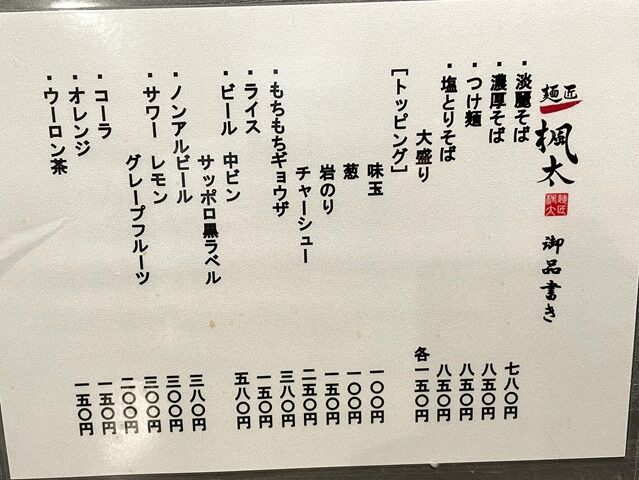 麺匠 楓太 麺匠楓太 御品書き
・淡麗そば 七八〇円
・濃厚そば 八五〇円
・つけ麺 八五〇円
・塩とりそば 八五〇円
大盛り 各一五〇円
[トッピング]
味玉 一〇〇円
葱 一〇〇円
岩のり 一五〇円
チャーシュー 二五〇円
・もちもちギョウザ 三八〇円
・ライス 一五〇円
・ビール 中ビン 五八〇円
サッポロ黒ラベル
・ノンアルビール 三八〇円
・サワー レモン 三〇〇円
グレープフルーツ 三〇〇円
・コーラ 二〇〇円
・オレンジ 一五〇円
・ウーロン茶 一五〇円